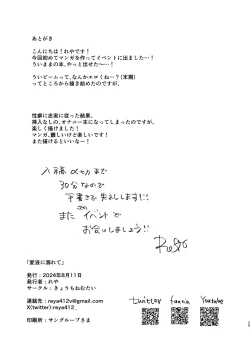 あとがき
こんにちは！れやです！
今回初めてマンガを作ってイベントに出ました…！
ういままの本、やっと出せた〜…！
ういビームって、なんかエロくね…？(末期)
ってところから描き始めたのですが、
性癖に忠実に従った結果、
挿入なしの、オナニー本になってしまったのですが、
楽しく描けました！
マンガ、難しいけど楽しいです！
また描けるといいなー！
入稿〆切まで
30分なので
手書きで失礼します!!
また イベントで
お会いしましょう!!
「愛液に溺れて」
発行：2024年8月11日
発行者：れや
サークル：きょうもねむたい
連絡先：reya412v@gmail.com
X(twitter):reya412_
印刷所：サングループさま
twitter
fanzia
Youtube